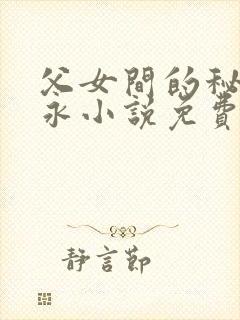 父女間的秘
永小說免費
靜言節